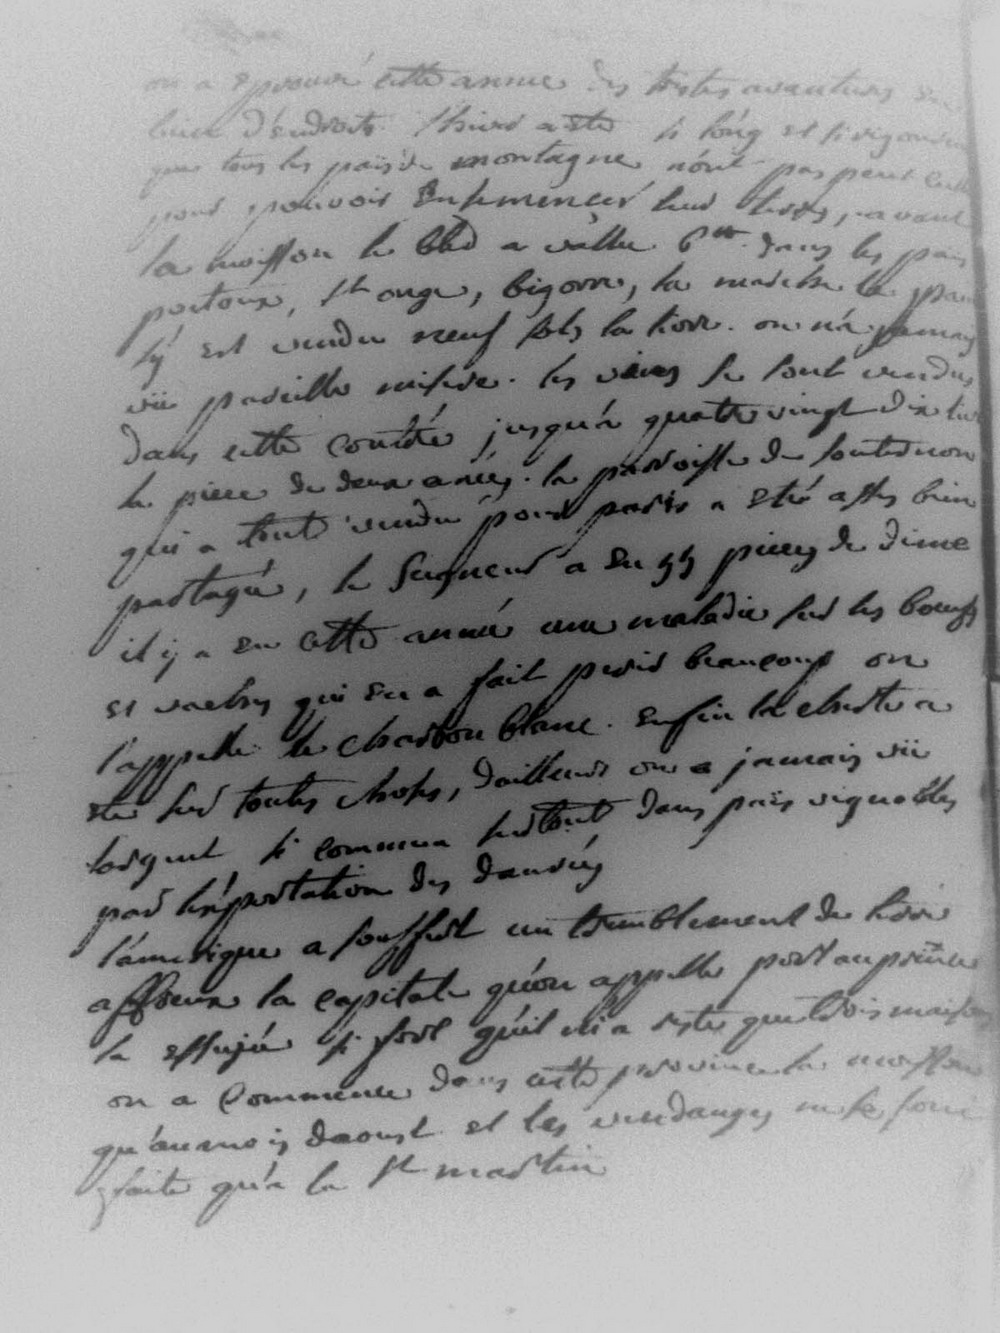 on a éprouvé cette année des tristes avantures en
bien d'éndroits l'hiver a été si lông et si rigoureux
que tous les païs de montagne n'ont pas peut etre
pour pouvoir ensemencer leur terres, avant
la moisson le bled a vallu 6tt dans les païs
poitoux, st onge, bigorre, la marche le pain
s'y est vendu neuf sols la livre. on n'a jamais
vü pareille misere. les vains se sont vendus
dans cette contrée jusqu'a quatre vingt dix livres
la piece de deux anées. la parroisse de
qui a tout vendu pour paris a eté asses bien
partagée, le seigneur a eu 55 pieces de dime
il y a eu cette année une maladie sur les boeufs
et vaches qui en a fait perir beaucoup on
l'appelle le charbon blanc. enfin la cherté a
eté sur toutes choses, dailleurs on a jamais vü
largent si commun surtout dans païs vignobles
par l'exportation des danrées
l'amerique a souffert un tremblement de terre
affreux la capitale qu'on appelle port au prince
la essuyée si fort qu'il n'i a resté que trois maisons
on a commencé dans cette province la moisson
qu'au mois daoust et les vendanges ne se sont
faite qu'a la st martin